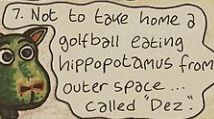 7. Not to take home a
golfball eating
hippopotamus from
outer space ...
called "Dez".